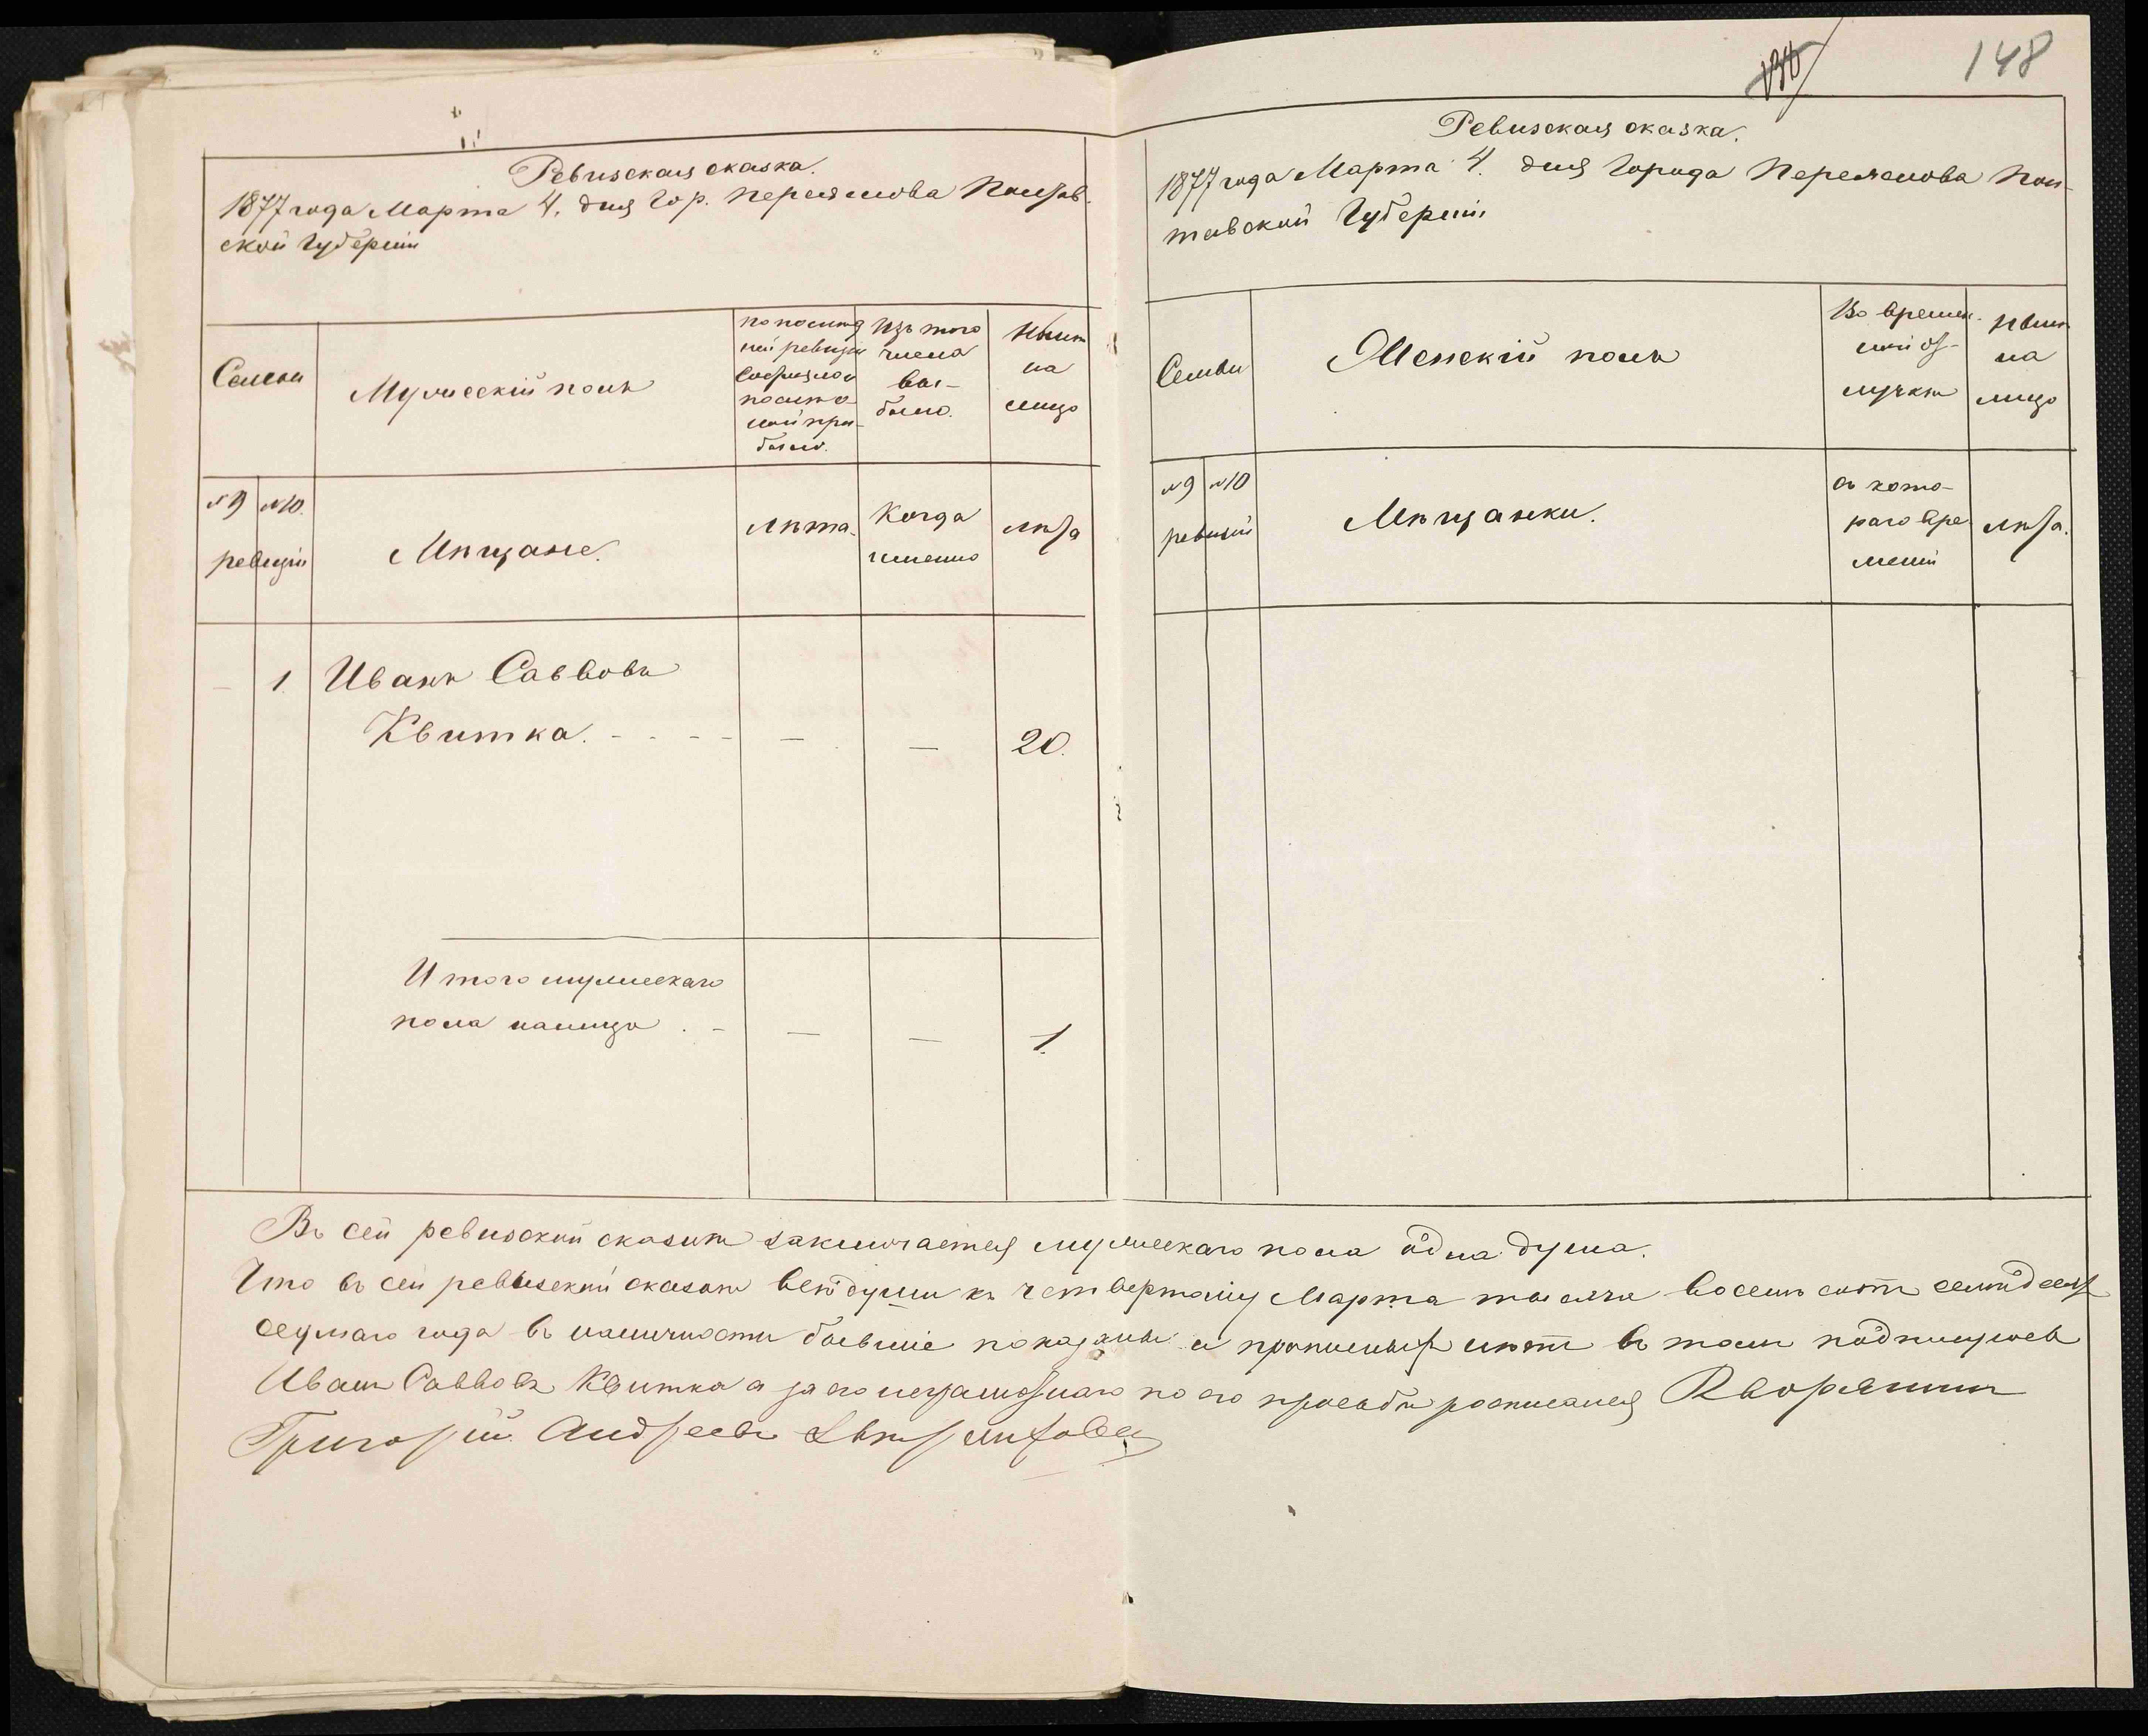 Ревизская сказка.
1877 года Марта 4. дня Гор. Переяслова Полтав-
ской Губерніи
Семьи
Мужескій полъ
по послѣд
ней ревизіи
состояло и
послѣ
оной при-
было.
Изъ того
числа
вы-
было.
Нынѣ
на
лицо
№9 №10.
ревизіи
Мѣщане.
Лѣта.
Когда
именно
лѣта
— 1. Иванъ Саввовъ
Квитка. - - - - — — 20.
Итого мужескаго
пола налицо . - — — 1.
130
148
Ревизская сказка.
1877 года Марта 4. дня Города Переяслова Пол-
тавской Губерніи
Семьи
Женскій полъ
Во времен-
ной от-
лучкѣ
Нынѣ
на
лицо
№9 №10
ревизіи
Мѣщанки.
съ кото-
раго вре
мени
лѣта.
Въ сей ревизской сказкѣ заключается мужескаго пола одна душа.
Что въ сей ревизской сказкѣ всѣ души къ четвертому Марта тысяча восемь сотъ семьдесят
седмаго года въ наличности бывшіе показаны и прописныхъ нѣтъ въ томъ подпишуюсь
Иванъ Саввовъ Квитка а за его неграмотнаго по его просьбѣ росписался Дворянинъ
Григорій Андреевъ